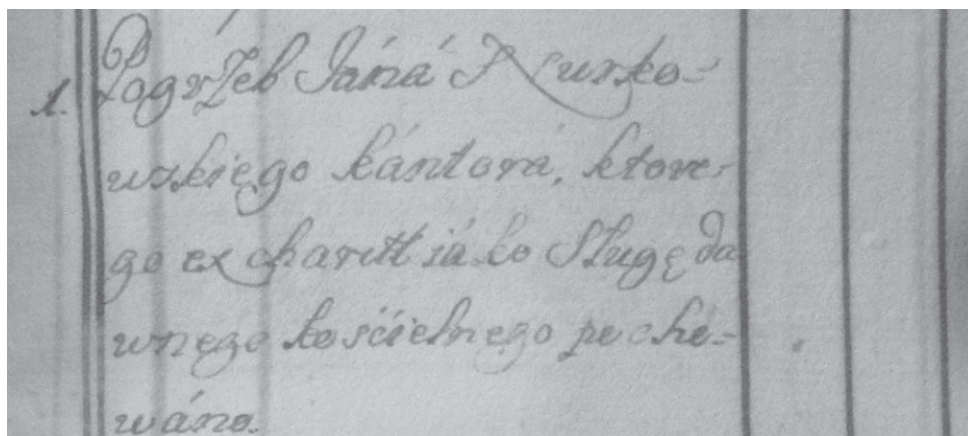 1. Pogrzeb Jáná Kurko-
wskięgo kántorá, ktore-
go ex charitt iáko Sługę da
wnęgo kościelnego pocho-
wáno.